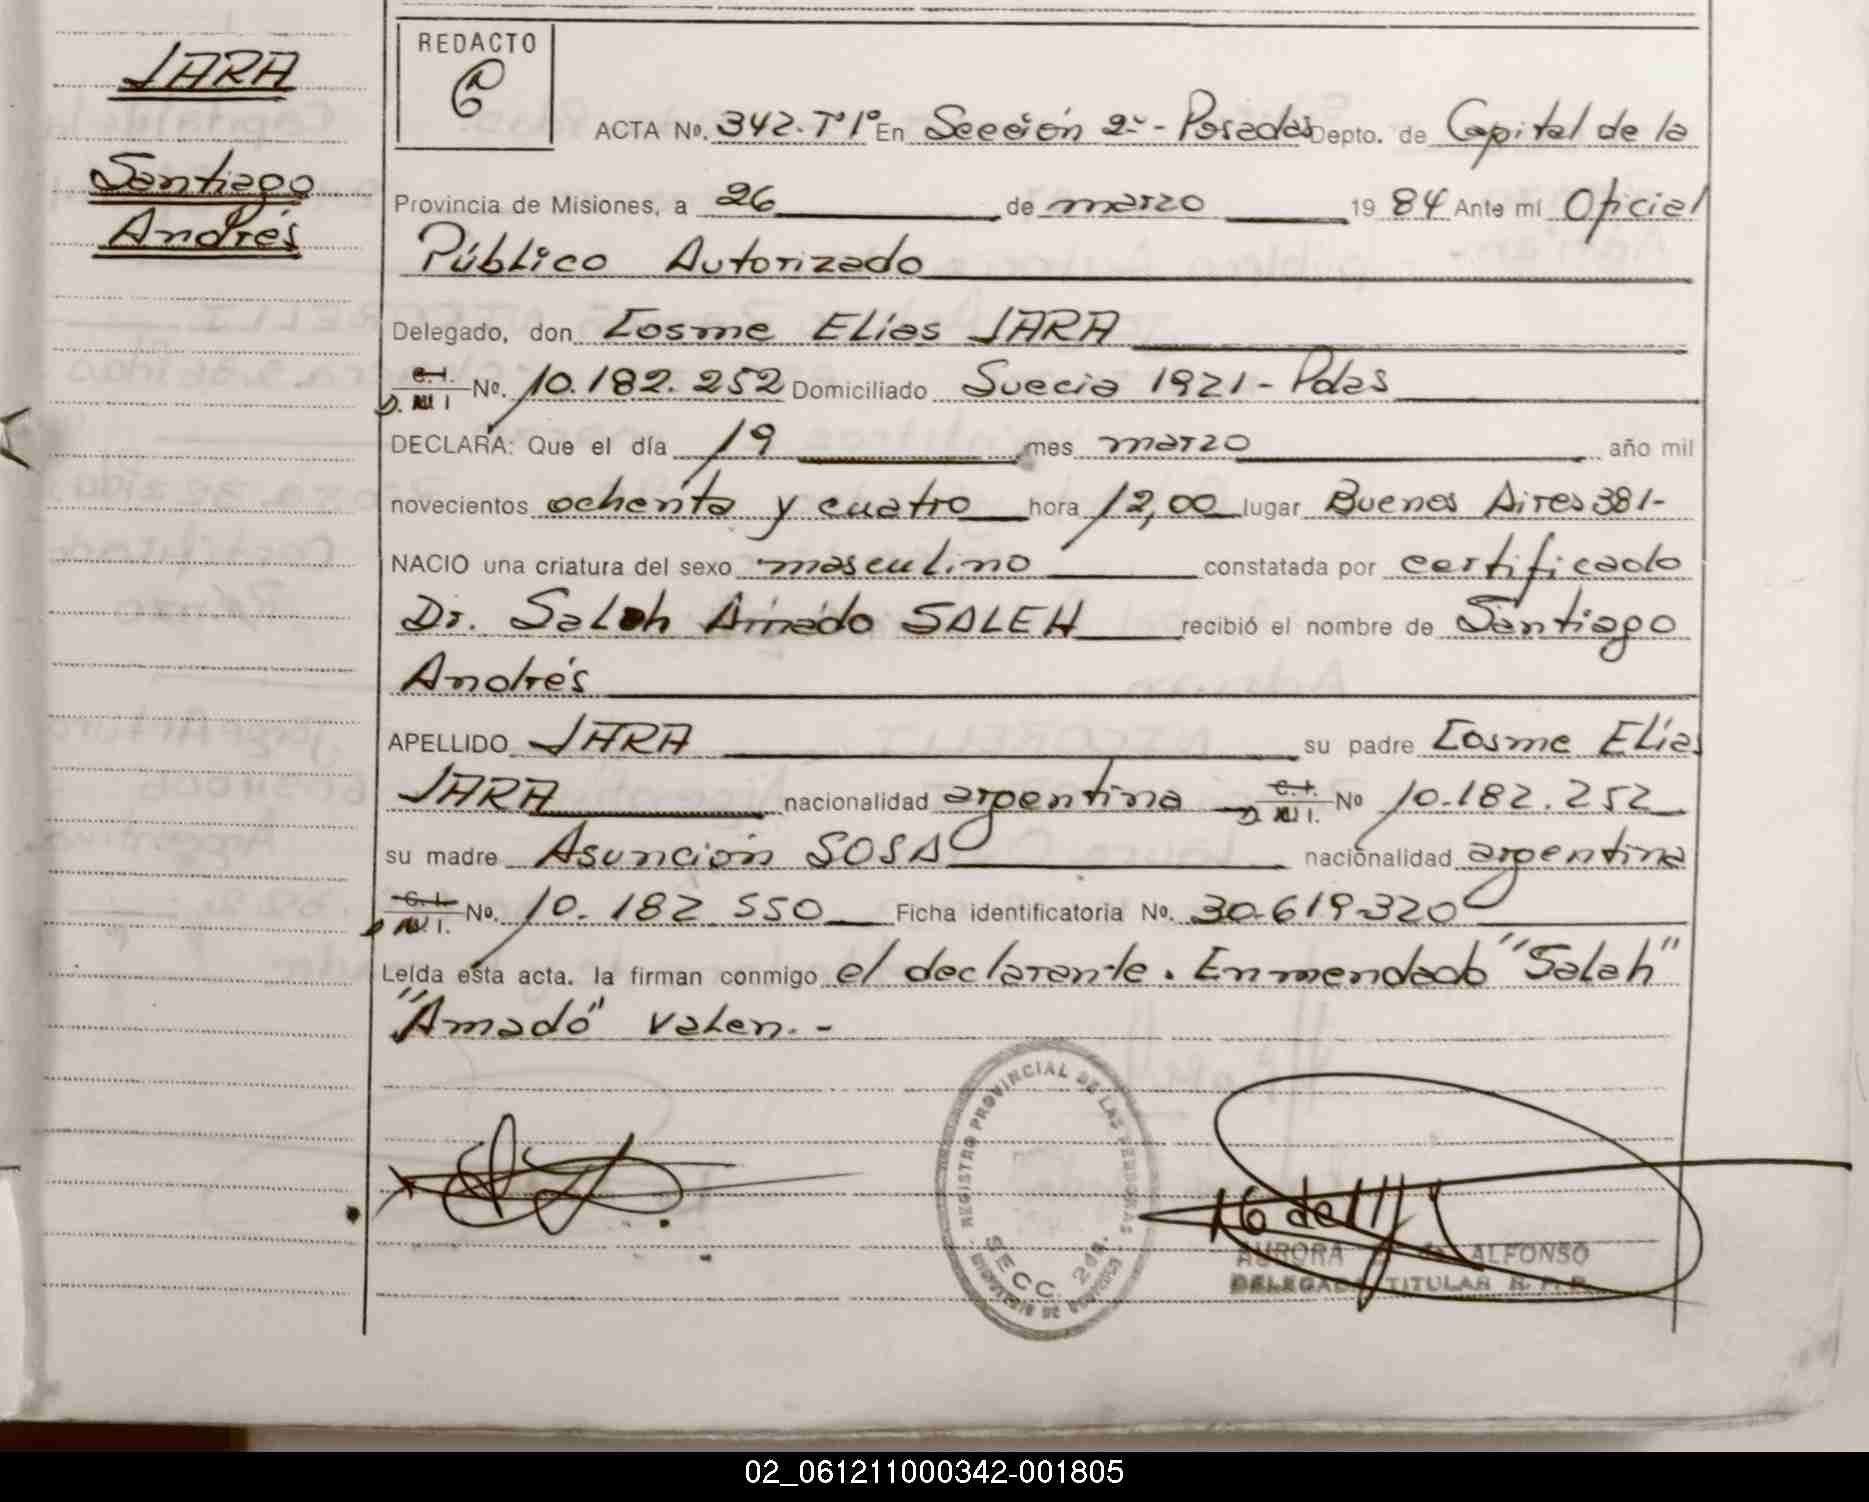 JARA
Santiago
Andrés
REDACTO
ACTA No. 342. Tº 1º En Sección 2ª - Posadas Depto. de Capital de la
Provincia de Misiones, a 26 de marzo 19 84 Ante mí Oficial
Público Autorizado
Delegado, don Cosme Elías JARA
C.I. D.N.I No. 10.182.252 Domiciliado Suecia 1921 - Pdas
DECLARA: Que el día 19 mes marzo año mil
novecientos ochenta y cuatro hora 12,00 lugar Buenos Aires 381-
NACIO una criatura del sexo masculino constatada por certificado
Dr. Saleh Amado SALEH recibió el nombre de Santiago
Andrés
APELLIDO JARA su padre Cosme Elías
JARA nacionalidad argentina C.I. D.N.I. No 10.182.252
su madre Asunción SOSA nacionalidad argentina
C.I. D.N.I. No. 10.182 550 Ficha identificatoria No. 30.619.320
Leída esta acta. la firman conmigo el declarante. Enmendado "Saleh"
"Amado" valen.-
REGISTRO PROVINCIAL DE LAS PERSONAS
SECC. 2da.
AURORA ALFONSO
DELEGADA TITULAR R. P. P.
02_061211000342-001805